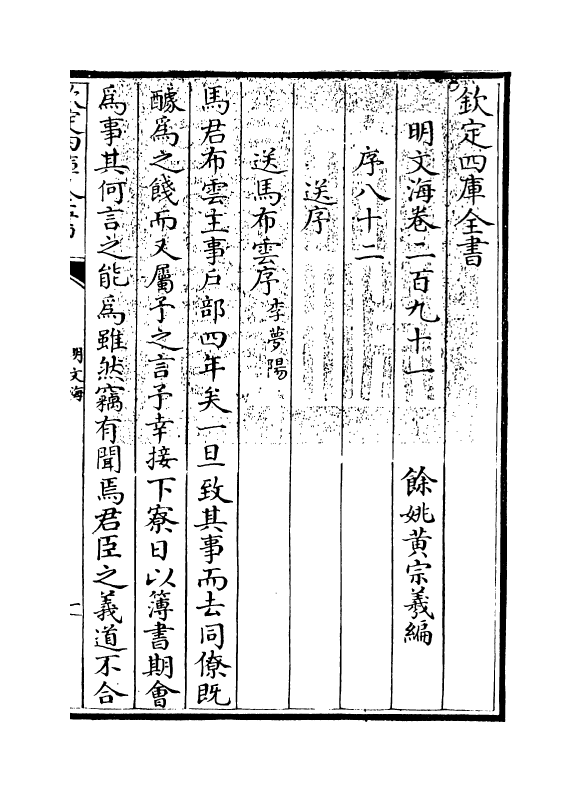 欽定四庫全書
明文海卷二百九十一
餘姚黄宗羲編
序八十二
送序
送馬布雲序李夢陽
馬君布雲主事户部四年矣一旦致其事而去同僚既
醵爲之餞而又屬予之言予幸接下寮日以簿書期會
爲事其何言之能爲雖然竊有聞焉君臣之義道不合
欽定四庫全書
明文海
一